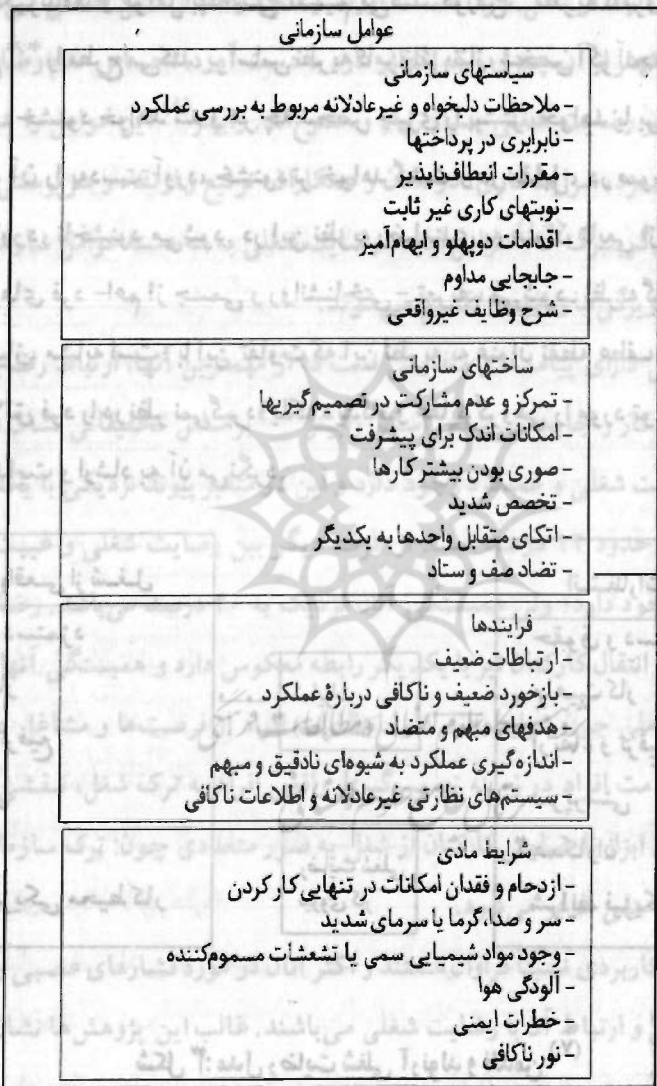 عوامل سازمانی
سیاستهای سازمانی
- ملاحظات دلبخواه و غیرعادلانه مربوط به بررسی عملکرد
- نابرابری در پرداختها
- مقررات انعطاف‌ناپذیر
- نوبتهای کاری غیر ثابت
- اقدامات دوپهلو و ابهام‌آمیز
- جابجایی مداوم
- شرح وظایف غیرواقعی
ساختهای سازمانی
- تمرکز و عدم مشارکت در تصمیم‌گیریها
- امکانات اندک برای پیشرفت
- صوری بودن بیشتر کارها
- تخصص شدید
- اتکای متقابل واحدها به یکدیگر
- تضاد صف و ستاد
فرایندها
- ارتباطات ضعیف
- بازخورد ضعیف و ناکافی دربارهٔ عملکرد
- هدفهای مبهم و متضاد
- اندازه‌گیری عملکرد به شیوه‌ای نادقیق و مبهم
- سیستم‌های نظارتی غیرعادلانه و اطلاعات ناکافی
شرایط مادی
- ازدحام و فقدان امکانات در تنهایی کار کردن
- سر و صدا، گرما یا سرمای شدید
- وجود مواد شیمیایی سمی یا تشعشات مسموم‌کننده
- آلودگی هوا
- خطرات ایمنی
- نور ناکافی